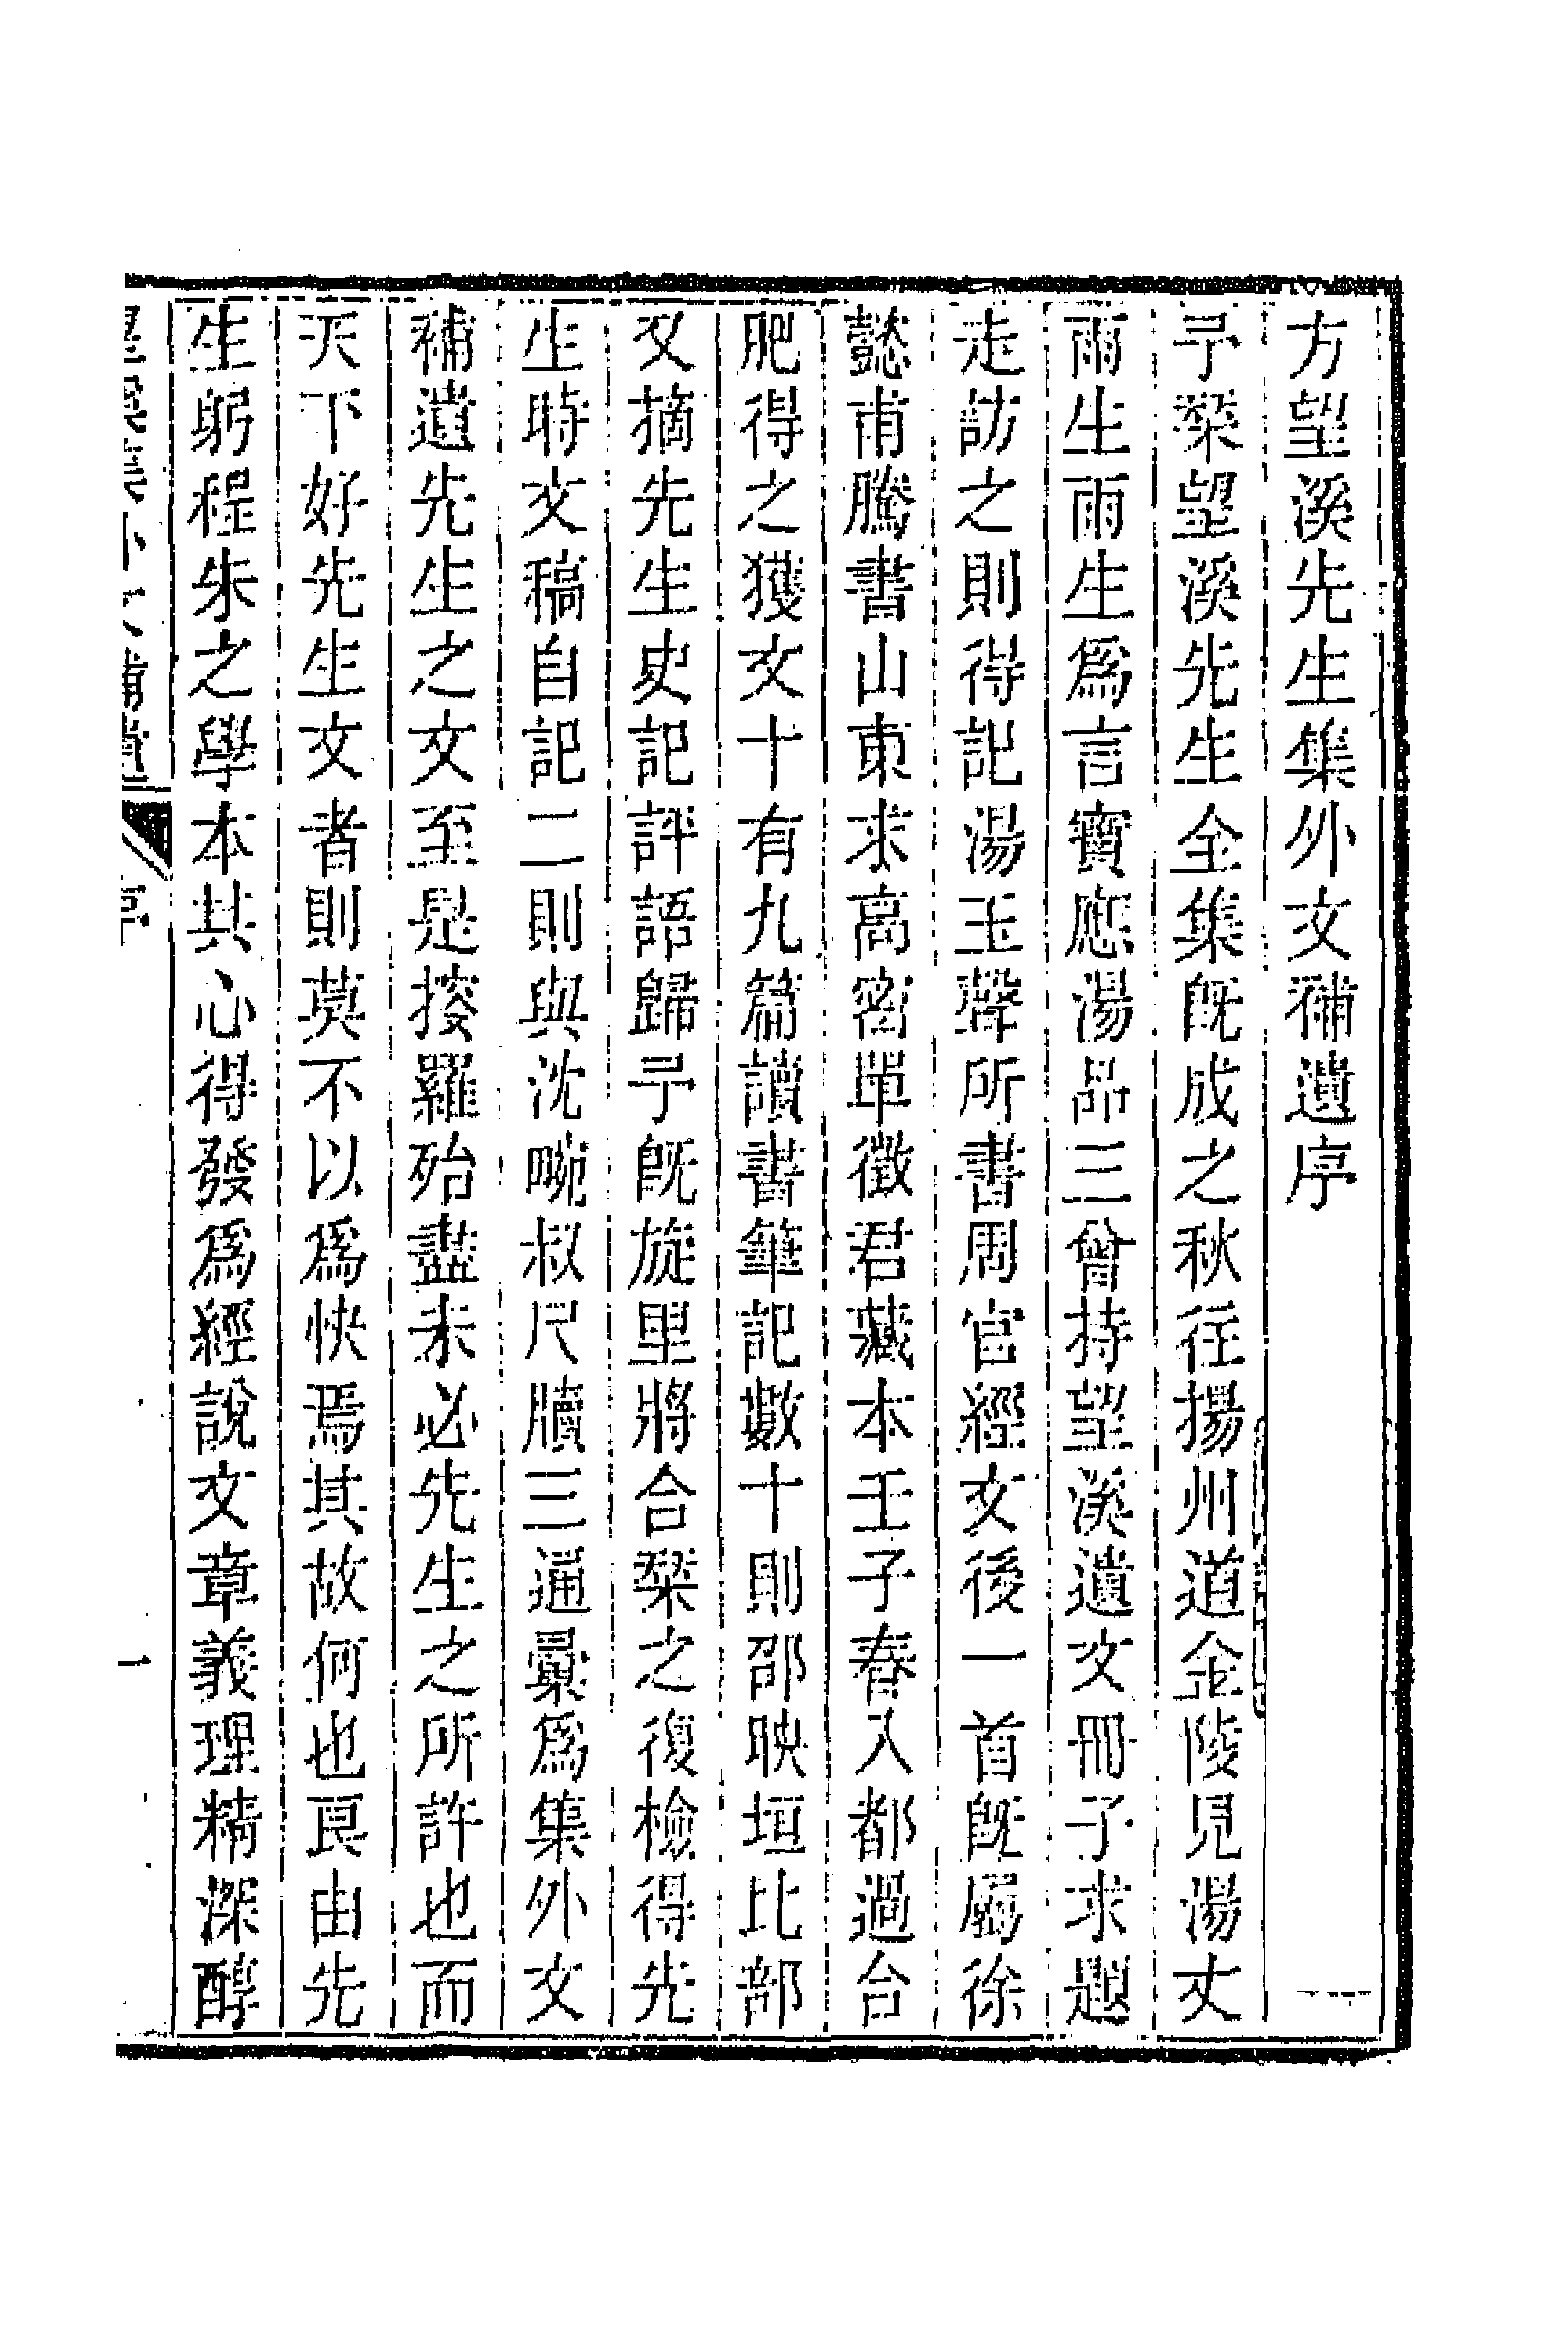 方望溪先生集外文補遺序
予槧望溪先生全集旣成之秋往揚州道金陵見湯丈
雨生雨生爲言寶應湯品三曾持望溪遺文冊子求題
走訪之則得記湯玉聲所書周官經文後一首旣屬徐
懿甫騰書山東求高密單徵君藏本壬子春入都過合
肥得之獲文十有九篇讀書筆記數十則邵映垣比部
又摘先生史記評語歸予旣旋里將合槧之復檢得先
生時文稿自記二則與沈畹叔尺牘三通彙爲集外文
補遺先生之文至是搜羅殆盡未必先生之所許也而
天下好先生文者則莫不以爲快焉其故何也良由先
生躬程朱之學本其心得發爲經說文章義理精深醇
望溪集外文補遺 序 一